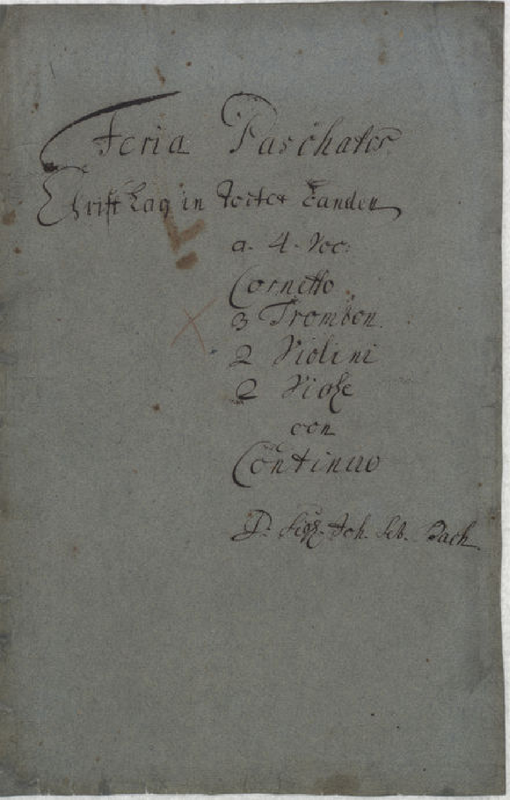 Feria Paschatos
Christ Lag in Todes banden
a. 4. Voc:
Cornetto
3 Trombon.
2 Violini
2 Viole
con
Continuo
D. Sigr. Joh. Seb. Bach